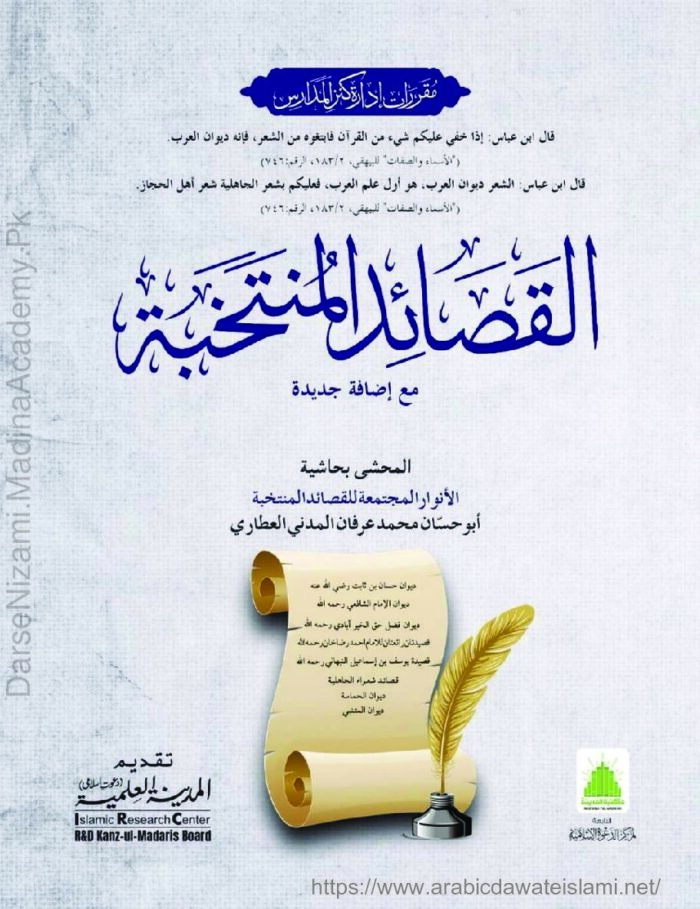 مقررات إدارة كنز المدارس
قال ابن عباس: إذا خفي عليكم شيء من القرآن فابتغوه من الشعر، فإنه ديوان العرب.
("الأسماء والصفات" للبيهقي، ١٨٣/٢، الرقم:٧٤٦)
قال ابن عباس: الشعر ديوان العرب، هو أول علم العرب، فعليكم بشعر الجاهلية شعر أهل الحجاز.
("الأسماء والصفات" للبيهقي، ١٨٣/٢، الرقم:٧٤٦)
القَصَائِد المُنتَخَبة
مع إضافة جديدة
المحشى بحاشية
الأنوار المجتمعة للقصائد المنتخبة
أبو حسّان محمد عرفان المدني العطاري
ديوان حسان بن ثابت رضي الله عنه
ديوان الإمام الشافعي رحمه الله
ديوان فضل حق الخير آبادي رحمه الله
قصيدتان رائعتان للامام احمد رضا خان رحمه الله
قصيدة يوسف بن إسماعيل النبهاني رحمه الله
قصائد شعراء الجاهلية
ديوان الحماسة
ديوان المتنبي
تقديم
المدينة العلمية (دعوت اسلامی)
Islamic Research Center
R&D Kanz-ul-Madaris Board
مكتبة المدينة
التابعة
لمركز الدعوة الإسلامية
DarseNizami.MadinaAcademy.Pk
https://www.arabicdawateislami.net/